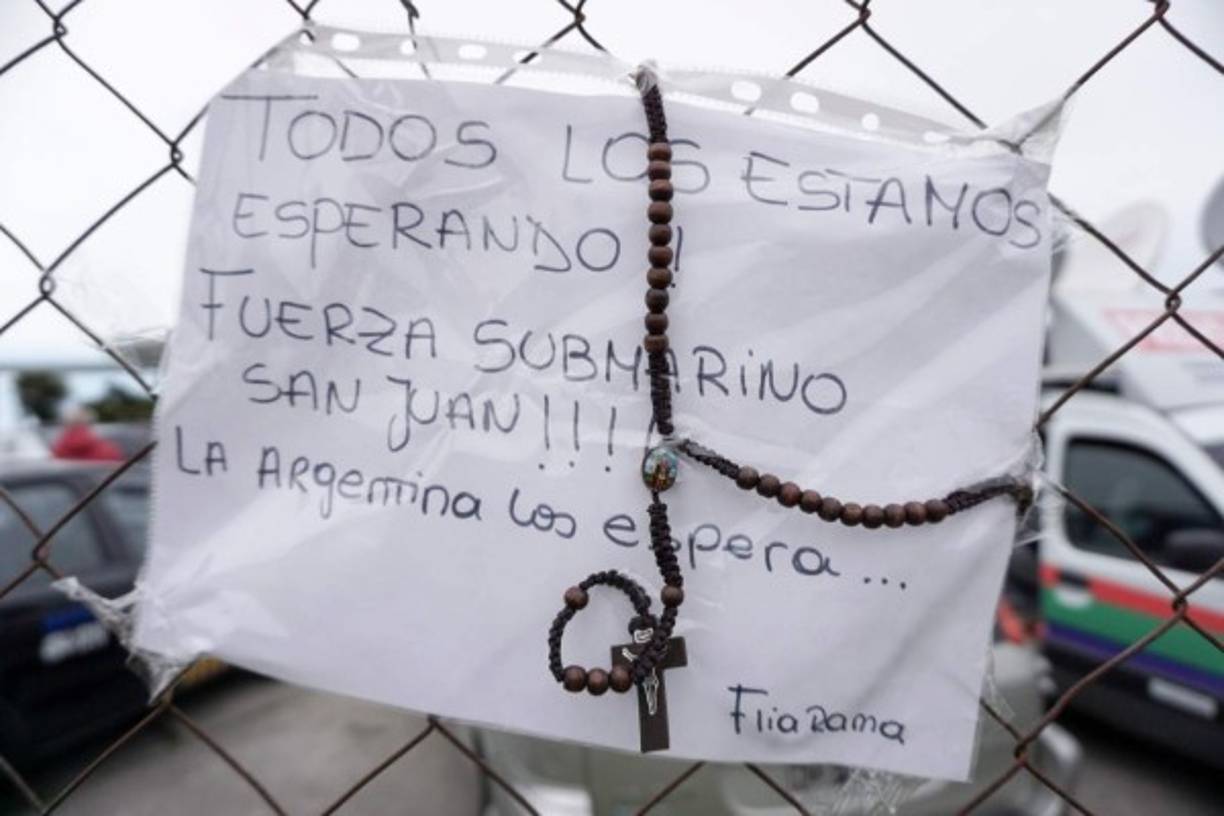 TODOS LOS ESTAMOS
ESPERANDO !!
FUERZA SUBMARINO
SAN JUAN !!!!
LA Argentina los espera...
Flia Rama